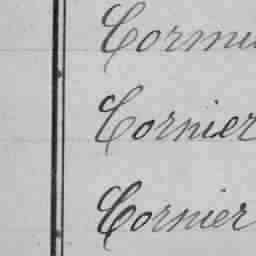 Cormi
Cornier
Cornier